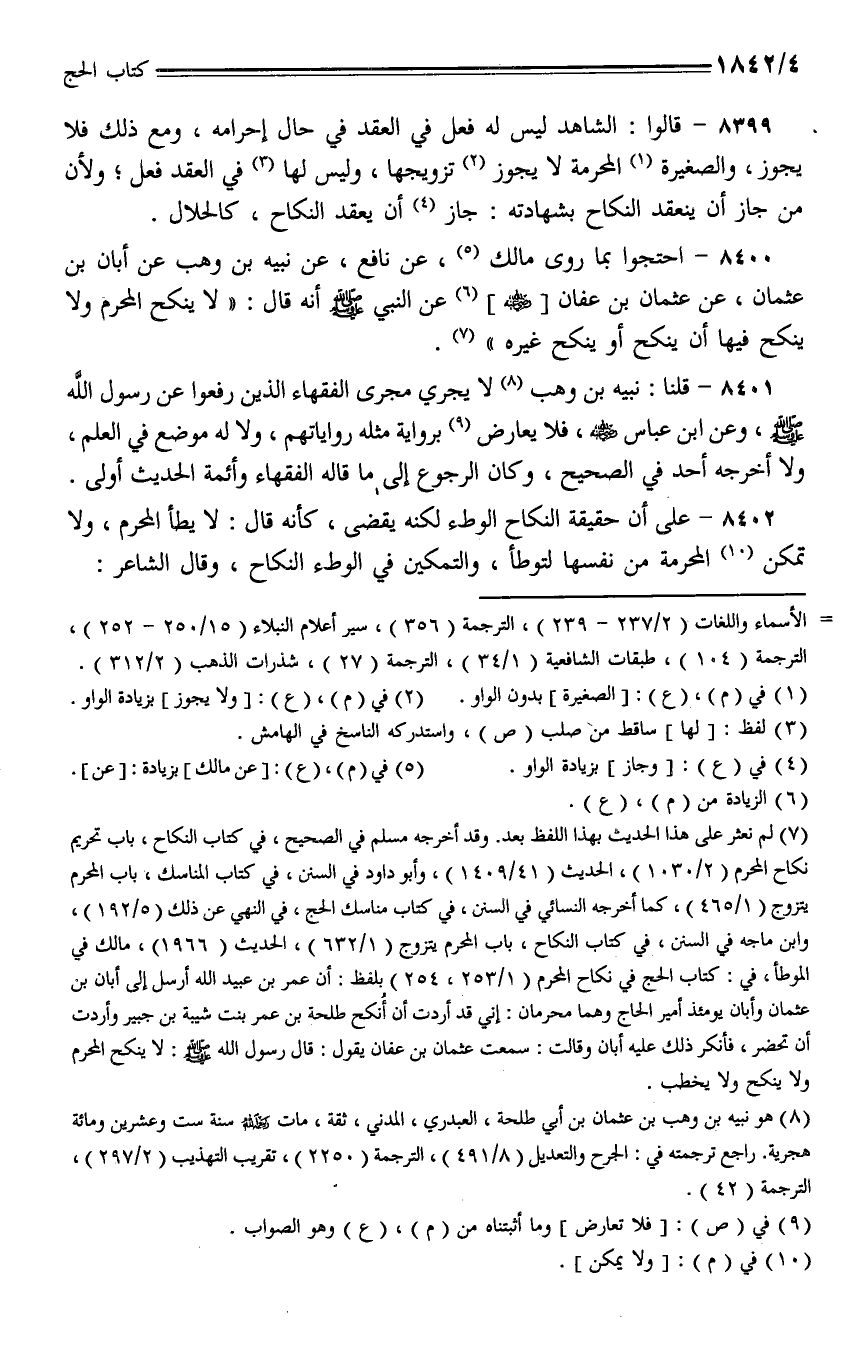 ١٨٤٢/٤ كتاب الحج
٨٣٩٩ – قالوا : الشاهد ليس له فعل في العقد في حال إحرامه ، ومع ذلك فلا
يجوز ، والصغيرة (١) المحرمة لا يجوز (٢) تزويجها ، وليس لها (٣) في العقد فعل ؛ ولأن
من جاز أن ينعقد النكاح بشهادته : جاز (٤) أن يعقد النكاح ، كالحلال .
٨٤٠٠ – احتجوا بما روى مالك (٥) ، عن نافع ، عن نبيه بن وهب عن أبان بن
عثمان ، عن عثمان بن عفان [ رضي الله عنه ] (٦) عن النبي ﷺ أنه قال : « لا ينكح المحرم ولا
ينكح فيها أن ينكح أو ينكح غيره » (٧) .
٨٤٠١ – قلنا : نبيه بن وهب (٨) لا يجري مجرى الفقهاء الذين رفعوا عن رسول اللَّه
ﷺ ، وعن ابن عباس رضي الله عنه ، فلا يعارض (٩) برواية مثله رواياتهم ، ولا له موضع في العلم ،
ولا أخرجه أحد في الصحيح ، وكان الرجوع إلى ما قاله الفقهاء وأئمة الحديث أولى .
٨٤٠٢ – على أن حقيقة النكاح الوطء لكنه يقضى ، كأنه قال : لا يطأ المحرم ، ولا
تمكن (١٠) المحرمة من نفسها لتوطأ ، والتمكين في الوطء النكاح ، وقال الشاعر :
= الأسماء واللغات ( ٢٣٧/٢ – ٢٣٩ ) ، الترجمة ( ٣٥٦ ) ، سير أعلام النبلاء ( ٢٥٠/١٥ – ٢٥٢ ) ،
الترجمة ( ١٠٤ ) ، طبقات الشافعية ( ٣٤/١ ) ، الترجمة ( ٢٧ ) ، شذرات الذهب ( ٣١٢/٢ ) .
(١) في ( م ) ، ( ع ) : [ الصغيرة ] بدون الواو . (٢) في ( م ) ، ( ع ) : [ ولا يجوز ] بزيادة الواو .
(٣) لفظ : [ لها ] ساقط من صلب ( ص ) ، واستدركه الناسخ في الهامش .
(٤) في ( ع ) : [ وجاز ] بزيادة الواو . (٥) في ( م ) ، ( ع ) : [ عن مالك ] بزيادة : [ عن ] .
(٦) الزيادة من ( م ) ، ( ع ) .
(٧) لم نعثر على هذا الحديث بهذا اللفظ بعد. وقد أخرجه مسلم في الصحيح ، في كتاب النكاح ، باب تحريم
نكاح المحرم ( ١٠٣٠/٢ ) ، الحديث ( ١٤٠٩/٤١ ) ، وأبو داود في السنن ، في كتاب المناسك ، باب المحرم
يتزوج ( ٤٦٥/١ ) ، كما أخرجه النسائي في السنن ، في كتاب مناسك الحج ، في النهي عن ذلك ( ١٩٢/٥ ) ،
وابن ماجه في السنن ، في كتاب النكاح ، باب المحرم يتزوج ( ٦٣٢/١ ) ، الحديث ( ١٩٦٦ ) ، مالك في
الموطأ ، في : كتاب الحج في نكاح المحرم ( ٢٥٣/١ ، ٢٥٤ ) بلفظ : أن عمر بن عبيد الله أرسل إلى أبان بن
عثمان وأبان يومئذ أمير الحاج وهما محرمان : إني قد أردت أن أُنكح طلحة بن عمر بنت شيبة بن جبير وأردت
أن تحضر ، فأنكر ذلك عليه أبان وقالت : سمعت عثمان بن عفان يقول : قال رسول الله ﷺ : لا ينكح المحرم
ولا ينكح ولا يخطب .
(٨) هو نبيه بن وهب بن عثمان بن أبي طلحة ، العبدري ، المدني ، ثقة ، مات رحمه الله سنة ست وعشرين ومائة
هجرية. راجع ترجمته في : الجرح والتعديل ( ٤٩١/٨ ) ، الترجمة ( ٢٢٥٠ ) ، تقريب التهذيب ( ٢٩٧/٢ ) ،
الترجمة ( ٤٢ ) .
(٩) في ( ص ) : [ فلا تعارض ] وما أثبتناه من ( م ) ، ( ع ) وهو الصواب .
(١٠) في ( م ) : [ ولا يمكن ] .